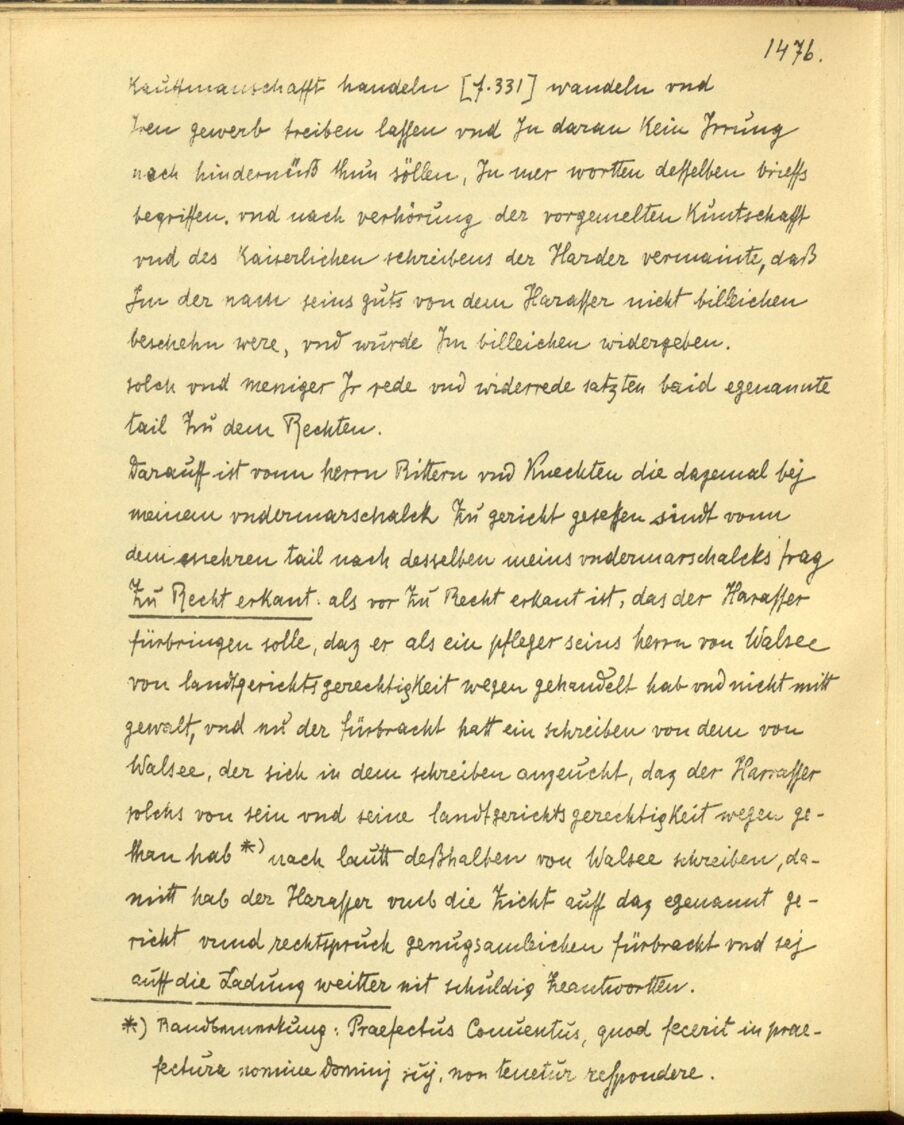 1476.
Kauffmanschafft handeln [f. 331] wandeln vnd
Iren gewerb treiben lassen vnd In daran kein Irrung
noch hindernüß thun söllen, In mer wortten desselben brieffs
begriffen. vnd nach verhörung der vorgemelten Kuntschafft
vnd des Kaiserlichen schreibens der Harder vermainte, daß
Im der nam seins guts von dem Harasser nicht billeichen
beschehn were, vnd wurde Im billeichen widergeben.
solch vnd meniger Ir rede vnd widerrede satzten baid egenannte
tail Zu dem Rechten.
Darauff ist vonn herrn Rittern vnd Knechten die dazemal bej
meinem vndermarschalck Zu gericht gesessen sindt vonn
dem mehren tail nach desselben meins vndermarschalcks frag
Zu Recht erkant: als vor Zu Recht erkant ist, das der Harasser
fürbringen solle, daz er als ein pfleger seins herrn von Walsee
von landtgerichtsgerechtigkeit wegen gehandelt hab vnd nicht mitt
gewalt, vnd nu der fürbracht hatt ein schreiben von dem von
Walsee, der sich in dem schreiben anzeucht, daz der Harrasser
solchs von sein vnd seine landtgerichtsgerechtigkeit wegen ge-
than hab *) nach lautt deßhalben von Walsee schreiben, da-
mitt hab der Harasser vmb die Zicht auff daz egenannt ge-
richt vnnd rechtspruch genugsamleichen fürbracht vnd sej
auff die Ladung weitter nit schuldig Zeantwortten.
*) Randbemerkung: Praefectus Conuentus, quod fecerit in prae-
fectura nomine Dominj suj, non tenetur respondere.